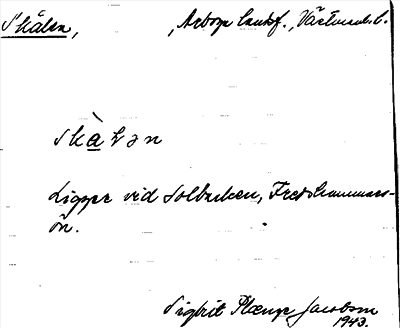 Skålen, , Arboga landsf., Västmanl.
Skàlən
Ligger vid Solbacken, Fredshammars-
ön.
Sigbrit Plænge Jacobson
1943.